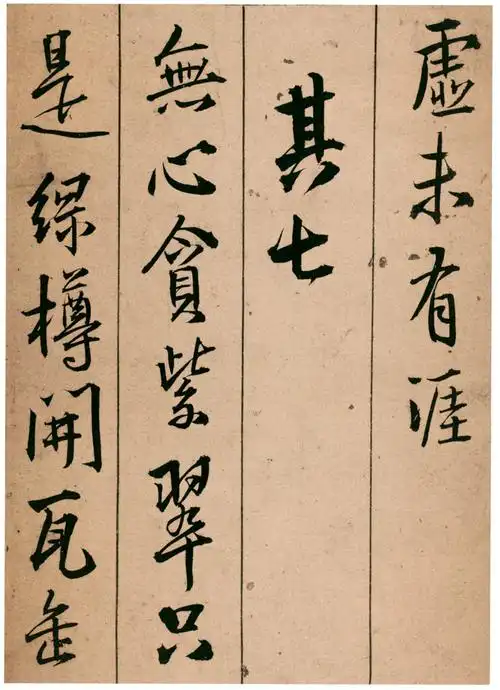 虛未有涯
其七
無心貪紫翠只
是綠樽開瓦缶